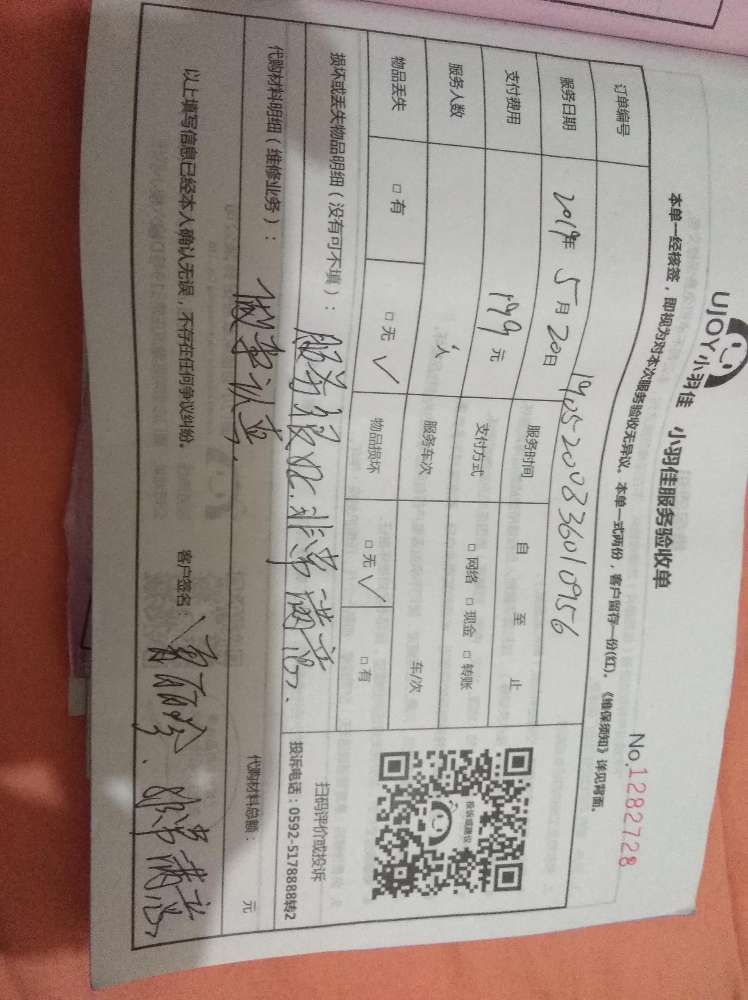 UJOY小羽佳 小羽佳服务验收单
No.1282728
本单一经核签，即视为对本次服务验收无异议。本单一式两份，客户留存一份(红)。《维保须知》详见背面。
订单编号 1905200836010956
服务日期 2019年 5月20日 服务时间 自 至 止
支付费用 199元 支付方式 □网络 □现金 □转账
服务人数 人 服务车次 车/次
物品丢失 □有 □无 ✓ 物品损坏 □无 ✓ □有
损坏或丢失物品明细（没有可不填）： 服务很好.非常满意.
代购材料明细（维修业务）： 做事认真. 代购材料总额： 元
投诉或建议
扫码评价或投诉
投诉电话：0592-5178888转2
以上填写信息已经本人确认无误，不存在任何争议纠纷。 客户签名： 非常满意